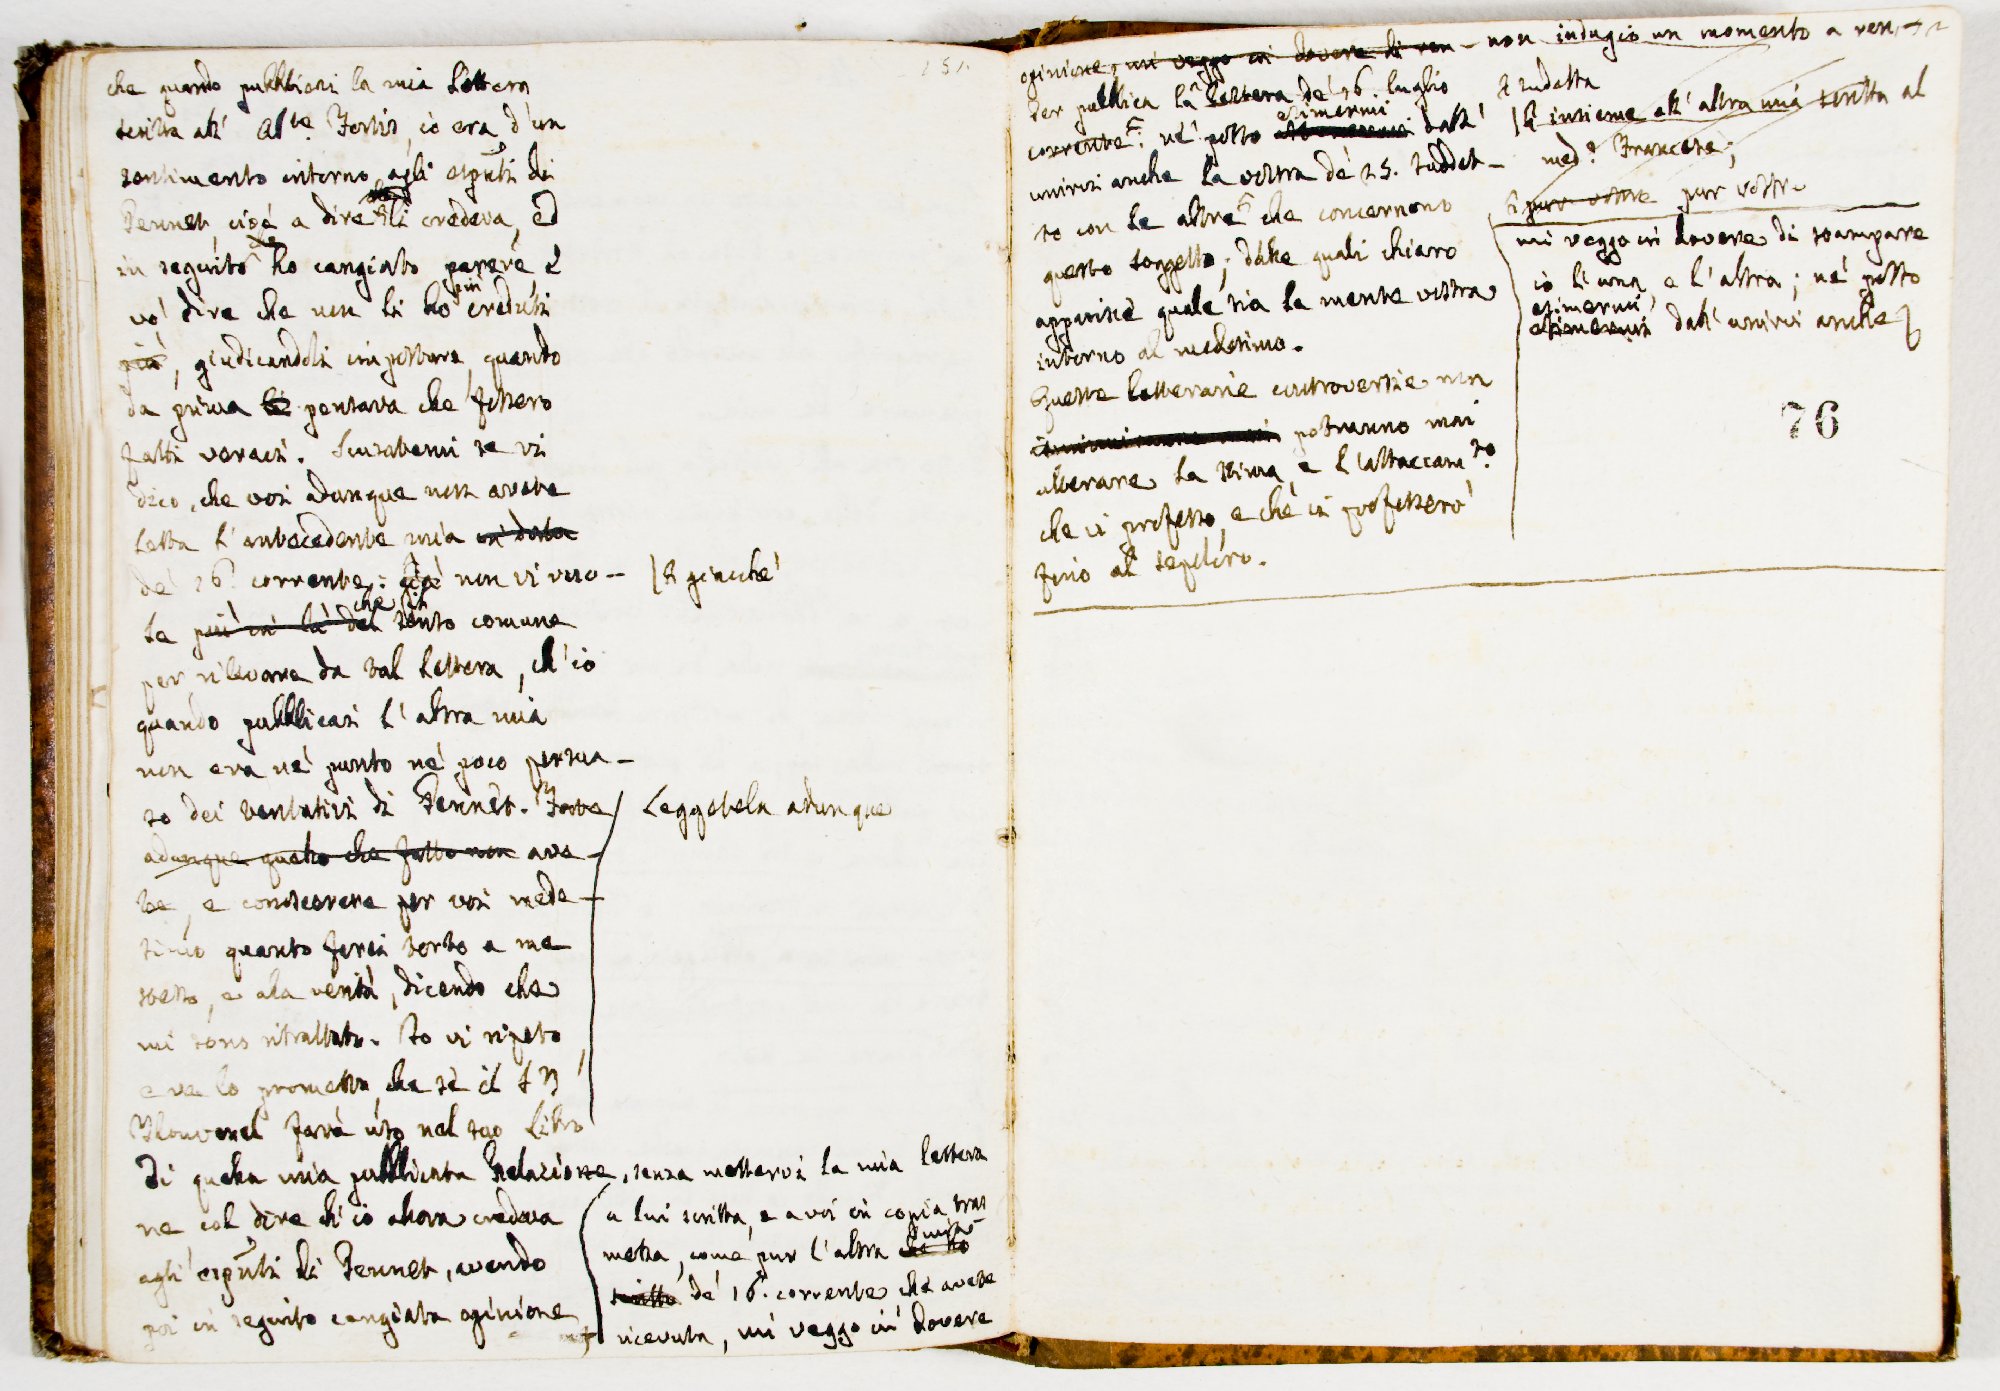 che quando pubblicai la mia Lettera
scritta all' Al.te Fortis, io era d'un
sentimento intorno agli esputi di
Pennet cioè a dire li credeva, ed
in seguito ho cangiato parere è
vo' dire che non li ho più creduti
più, giudicandoli imposture, quando
da prima li pensava che fossero
fatti veraci. Scusatemi se vi
dico, che voi adunque non avete
letta l'antecedente mia in data
de' 16. corrente: cioè non vi vuo-
le più in là del che il senso comune
per rilevare da tal lettera, ch'io
quando pubblicai l'altra mia
non era né punto né poco persua-
so dei tentativi di Pennet. Fate
adunque quello che fatto non ave-
te, e conoscerete per voi mede-
simo quanto forsi torto a me
stesso, e alla verità, dicendo che
mi sono ritrattato. Io vi ripeto,
e ve lo prometto, che se il S.r
Thouvenel farà uso nel suo Libro
di quella mia pubblicata Relazione, senza mettervi la mia lettera
ne col dire ch'io allora credeva
agli esputi di Pennet, avendo
poi in seguito cangiata opinione
| R giacché
Leggetela adunque
a lui scritta, e a voi in copia tras
messa, come pur l'altra che ho
scritta de' 16. corrente che avete
ricevuta, mi veggo in dovere
opinione, mi veggo in dovere di ren-
der pubblica la lettera de' 16. luglio
corrente: né posso esimermi dall'
unirvi anche la vostra de' 25. suddet-
to con le altre che concernono
questo soggetto; dalle quali chiaro
apparisce quale sia la mente vostra
intorno al medesimo.
Queste letterarie controversie non
potranno mai
alterare la stima, e l'attaccam.to
che vi professo, e che vi professerò
fino al sepolcro.
non indugio un momento a ren-
R sudetta
| R insieme all' altra mia scritta al
med.o Francese;
R pure vostre pur vostr-
mi veggo in dovere di stampare
io l'una e l'altra; né posso
esimermi
esimermi dall' unirvi anche
76